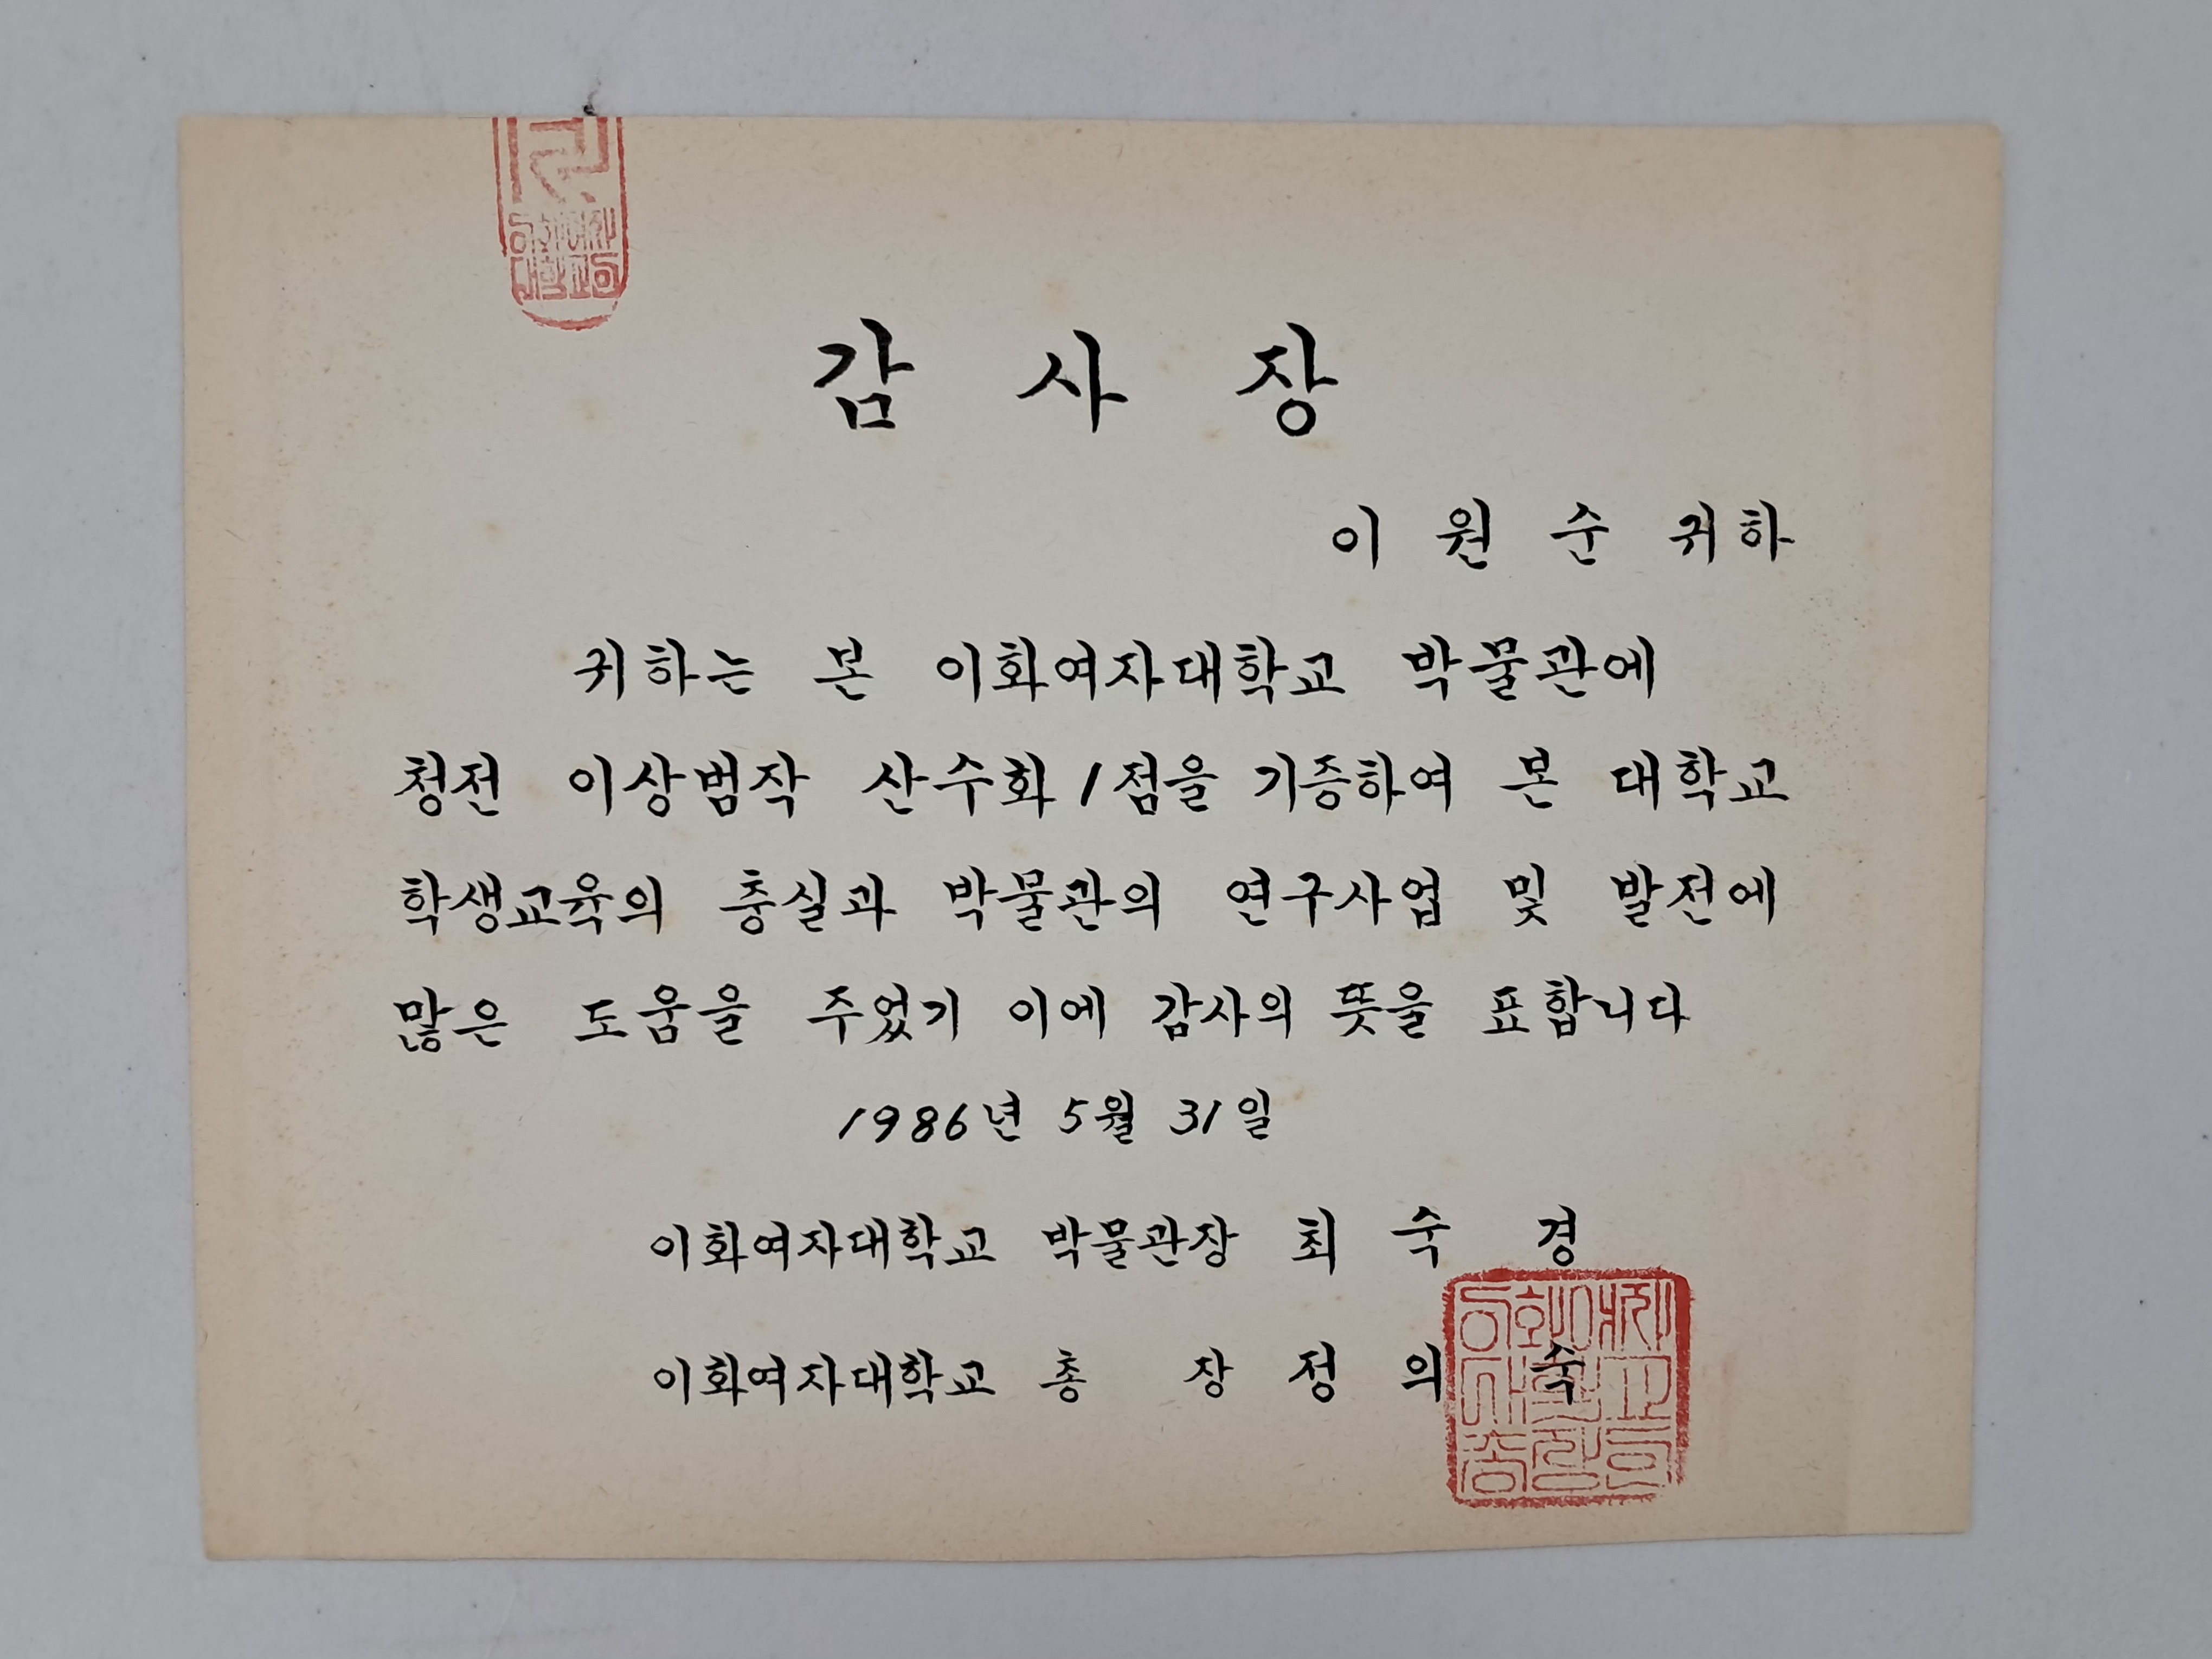 감 사 장
이 원 순 귀하
귀하는 본 이화여자대학교 박물관에
청전 이상범작 산수화 1점을 기증하여 본 대학교
학생교육의 충실과 박물관의 연구사업 및 발전에
많은 도움을 주었기 이에 감사의 뜻을 표합니다
1986년 5월 31일
이화여자대학교 박물관장 최 숙 경
이화여자대학교 총 장 정 의 숙